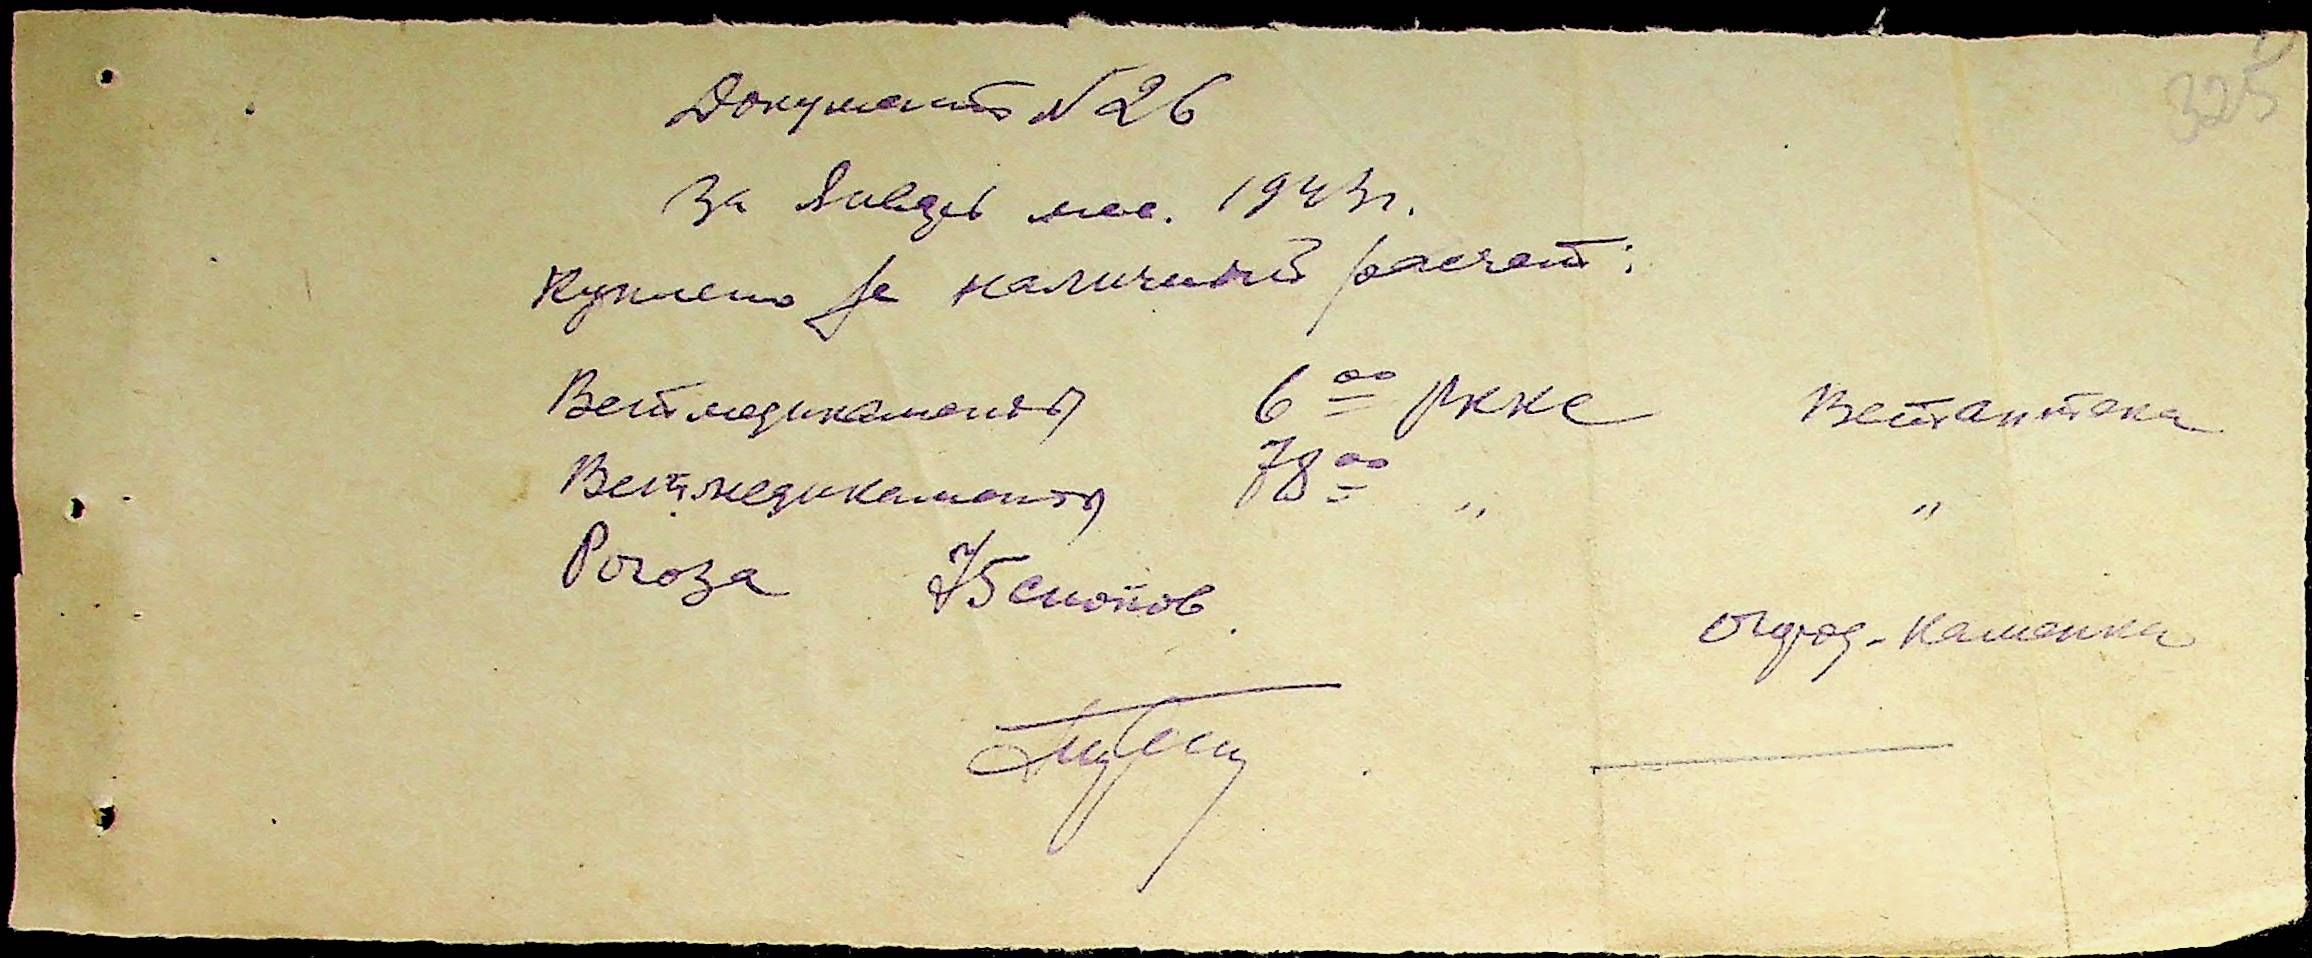 325
Документ N 26
за Январь мес. 1943 г.
Куплено за наличный расчет:
Ветмедикаменты 6 00 РККС Ветаптека
Ветмедикаменты 78 00 " "
Рогоза 75 снопов.
Огрод-Каменка